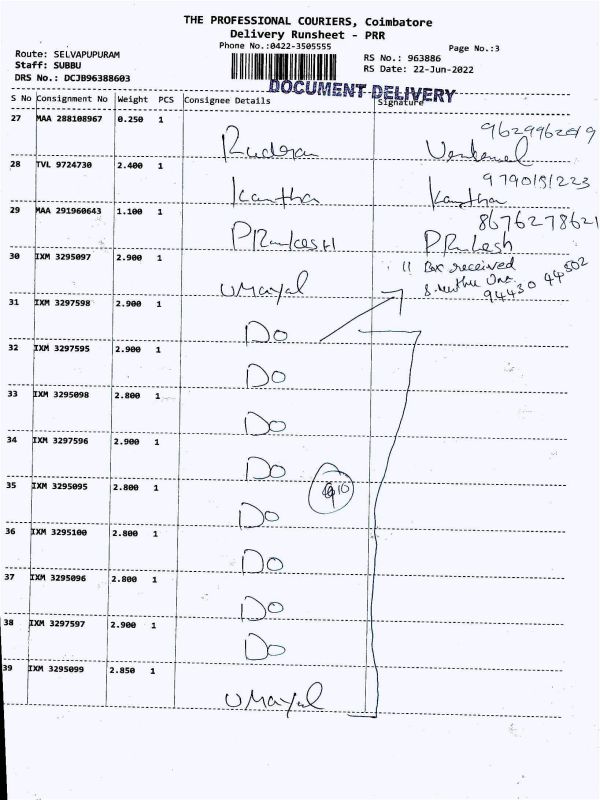 THE PROFESSIONAL COURIERS, Coimbatore
Delivery Runsheet - PRR
Phone No.:0422-3505555
Page No.:3
Route: SELVAPUPURAM
Staff: SUBBU
DRS No.: DCJB96388603
RS No.: 963886
RS Date: 22-Jun-2022
DOCUMENT DELIVERY
S No Consignment No Weight PCS Consignee Details Signature
27 MAA 288108967 0.250 1 Rudran
28 TVL 9724730 2.400 1 Kantha 9790151223 Kantha
29 MAA 291960643 1.100 1 PRakesh 8676278621 PRakesh
30 IXM 3295097 2.900 1 UMayal 11 Box received
94430 44502
31 IXM 3297598 2.900 1 Do
32 IXM 3297595 2.900 1 Do
33 IXM 3295098 2.800 1 Do
34 IXM 3297596 2.900 1 Do
35 IXM 3295095 2.800 1 Do
36 IXM 3295100 2.800 1 Do
37 IXM 3295096 2.800 1 Do
38 IXM 3297597 2.900 1 Do
39 IXM 3295099 2.850 1 UMayal